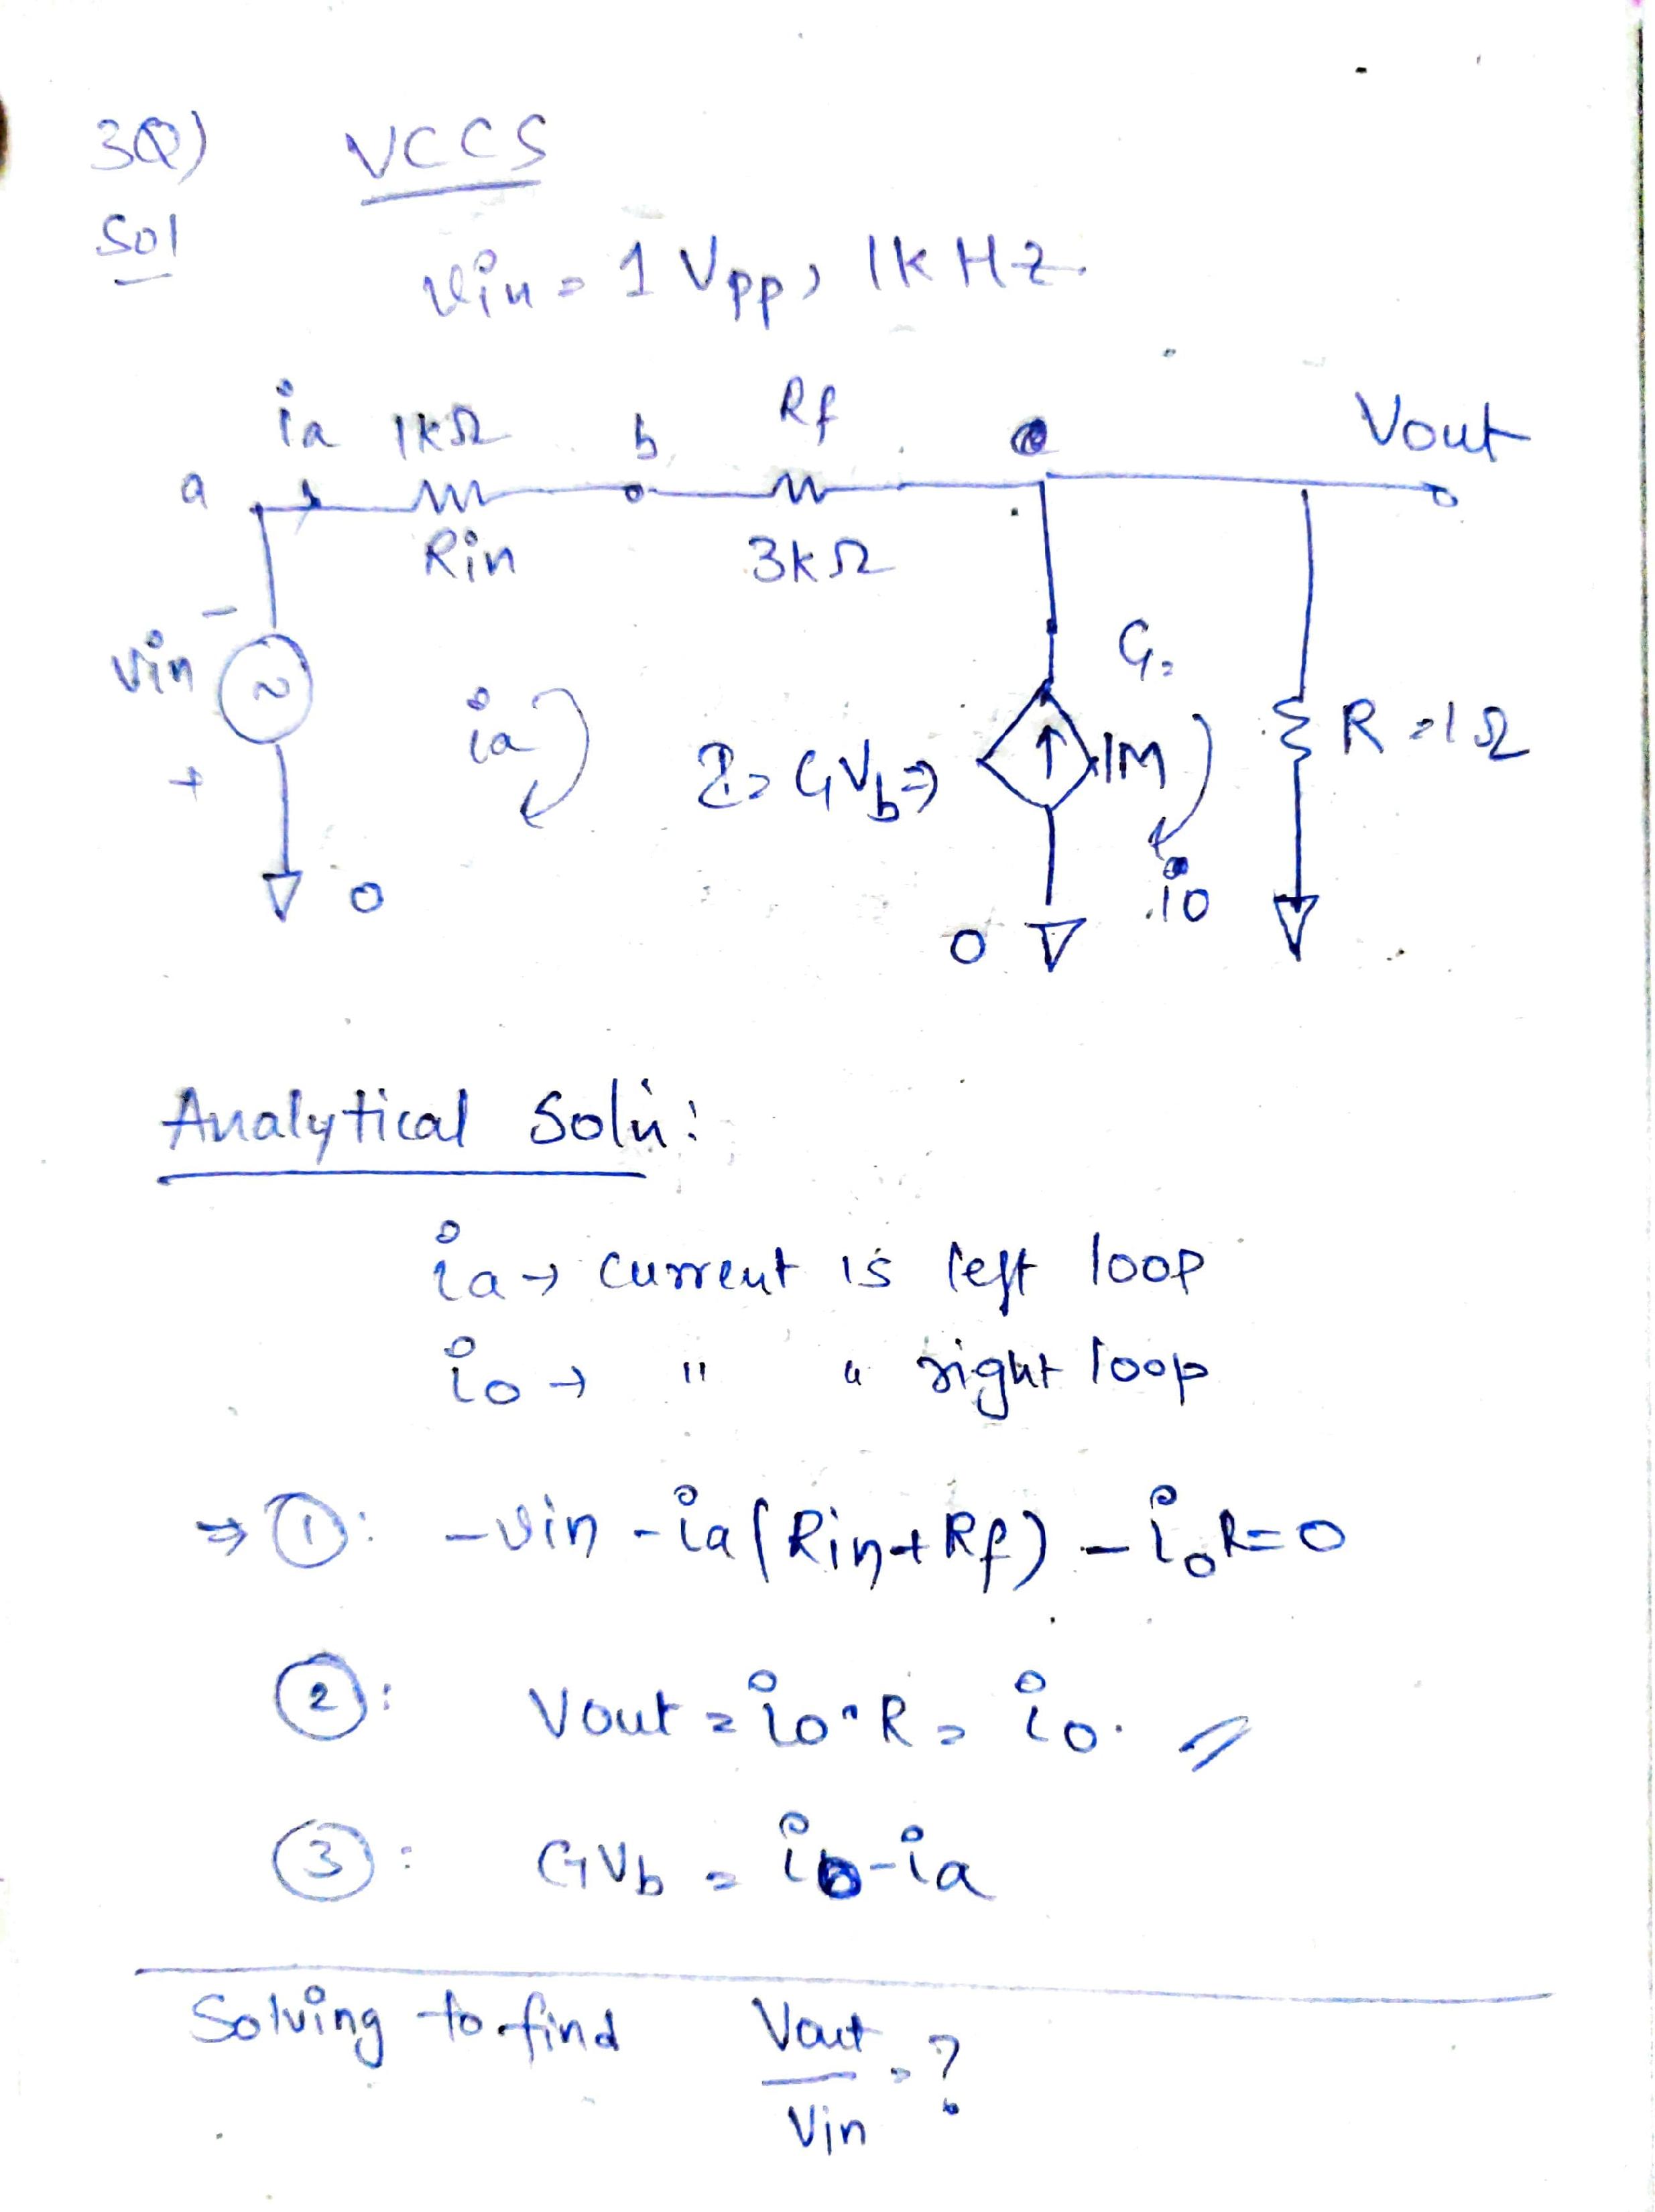 3Q) VCCS
Sol
Vin = 1 Vpp, 1kHz.
ia 1kΩ b Rf Vout
a
Rin 3kΩ
-
Vin
G=
ia
I= GVb ⇒ 1M R=1Ω
+
io
0
0
Analytical Soln:
ia → current is left loop
io → " " right loop
⇒ ①: -Vin - ia(Rin+Rf) - ioR=0
②: Vout = io·R = io.
③: GVb = io-ia
Solving to find Vout/Vin = ?